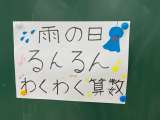 雨の日
るんるん
わくわく算数